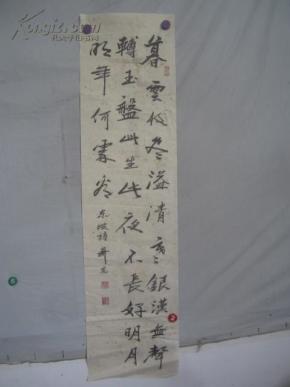 暮雲收尽溢清寒銀漢無聲
轉玉盤此生此夜不長好明月
明年何處看
东坡诗